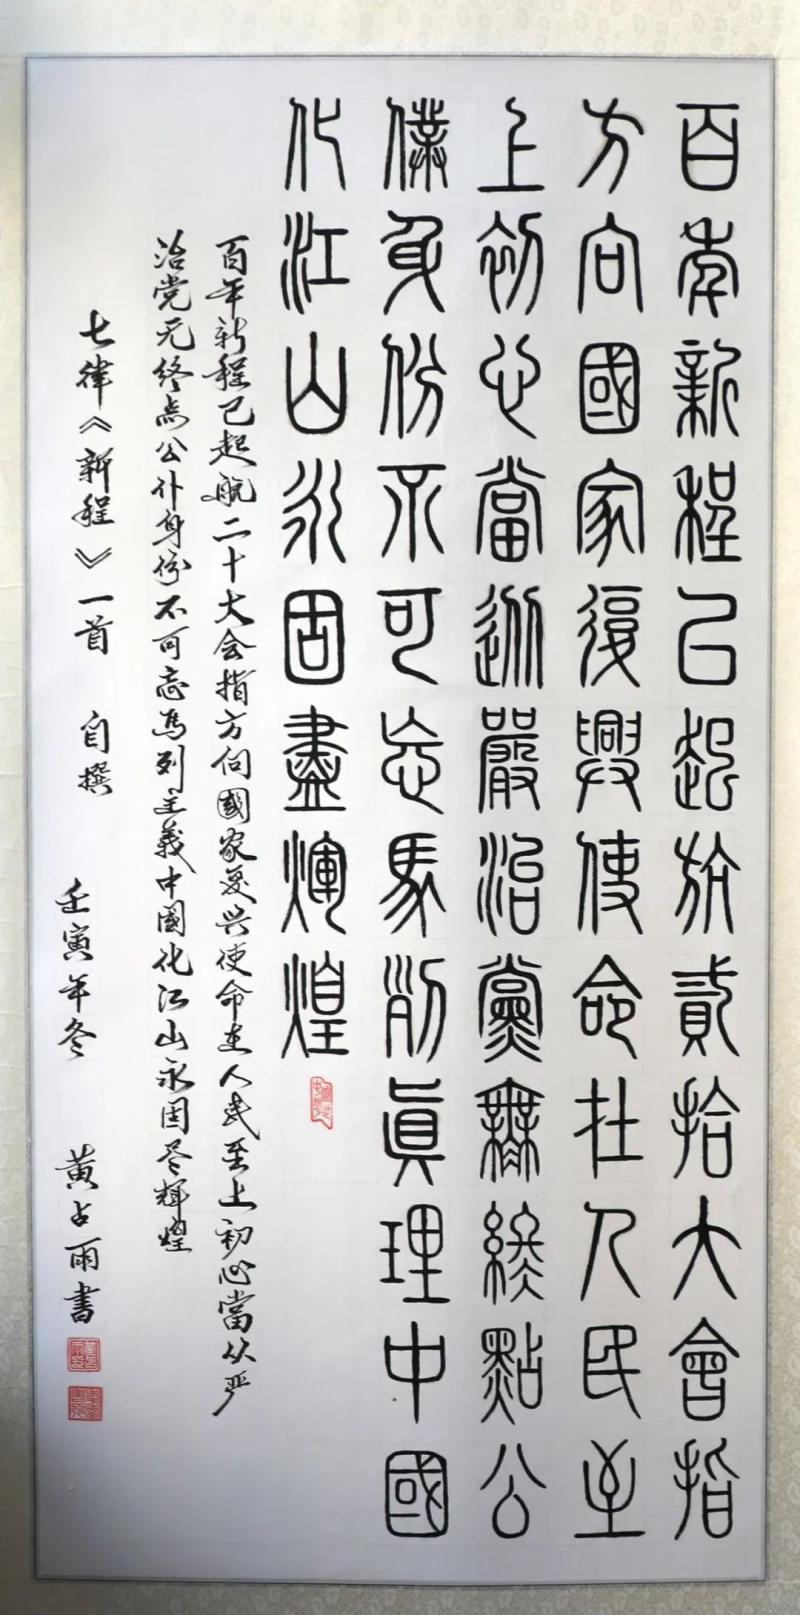 百年新程已起航貳拾大會指
方向國家復興使命在人民至
上初心當從嚴治黨無終點公
僕身份不可忘馬列眞理中國
化江山永固盡煇煌
百年新程已起航二十大会指方向國家复兴使命在人民至上初心當从严
治党无终点公仆身份不可忘馬列主義中國化江山永固尽輝煌
七律《新程》一首 自撰
壬寅年冬 黄占雨書